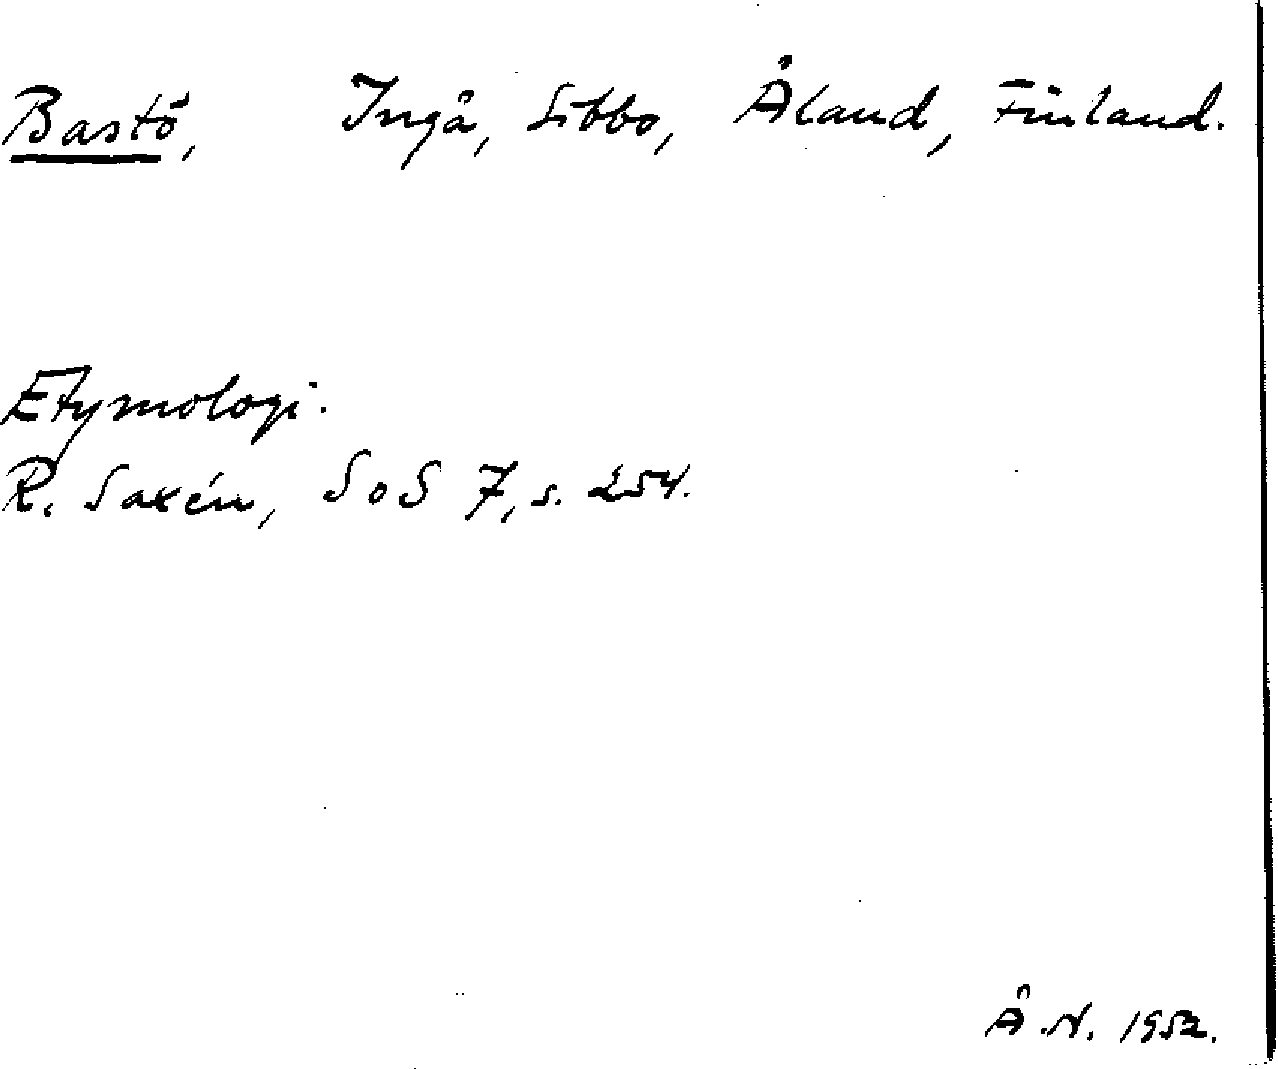 Bastö, Ingå, Sibbo, Åland, Finland.
Etymologi.
R. Saxén, SoS 7, s. 254.
Å.N. 1952.